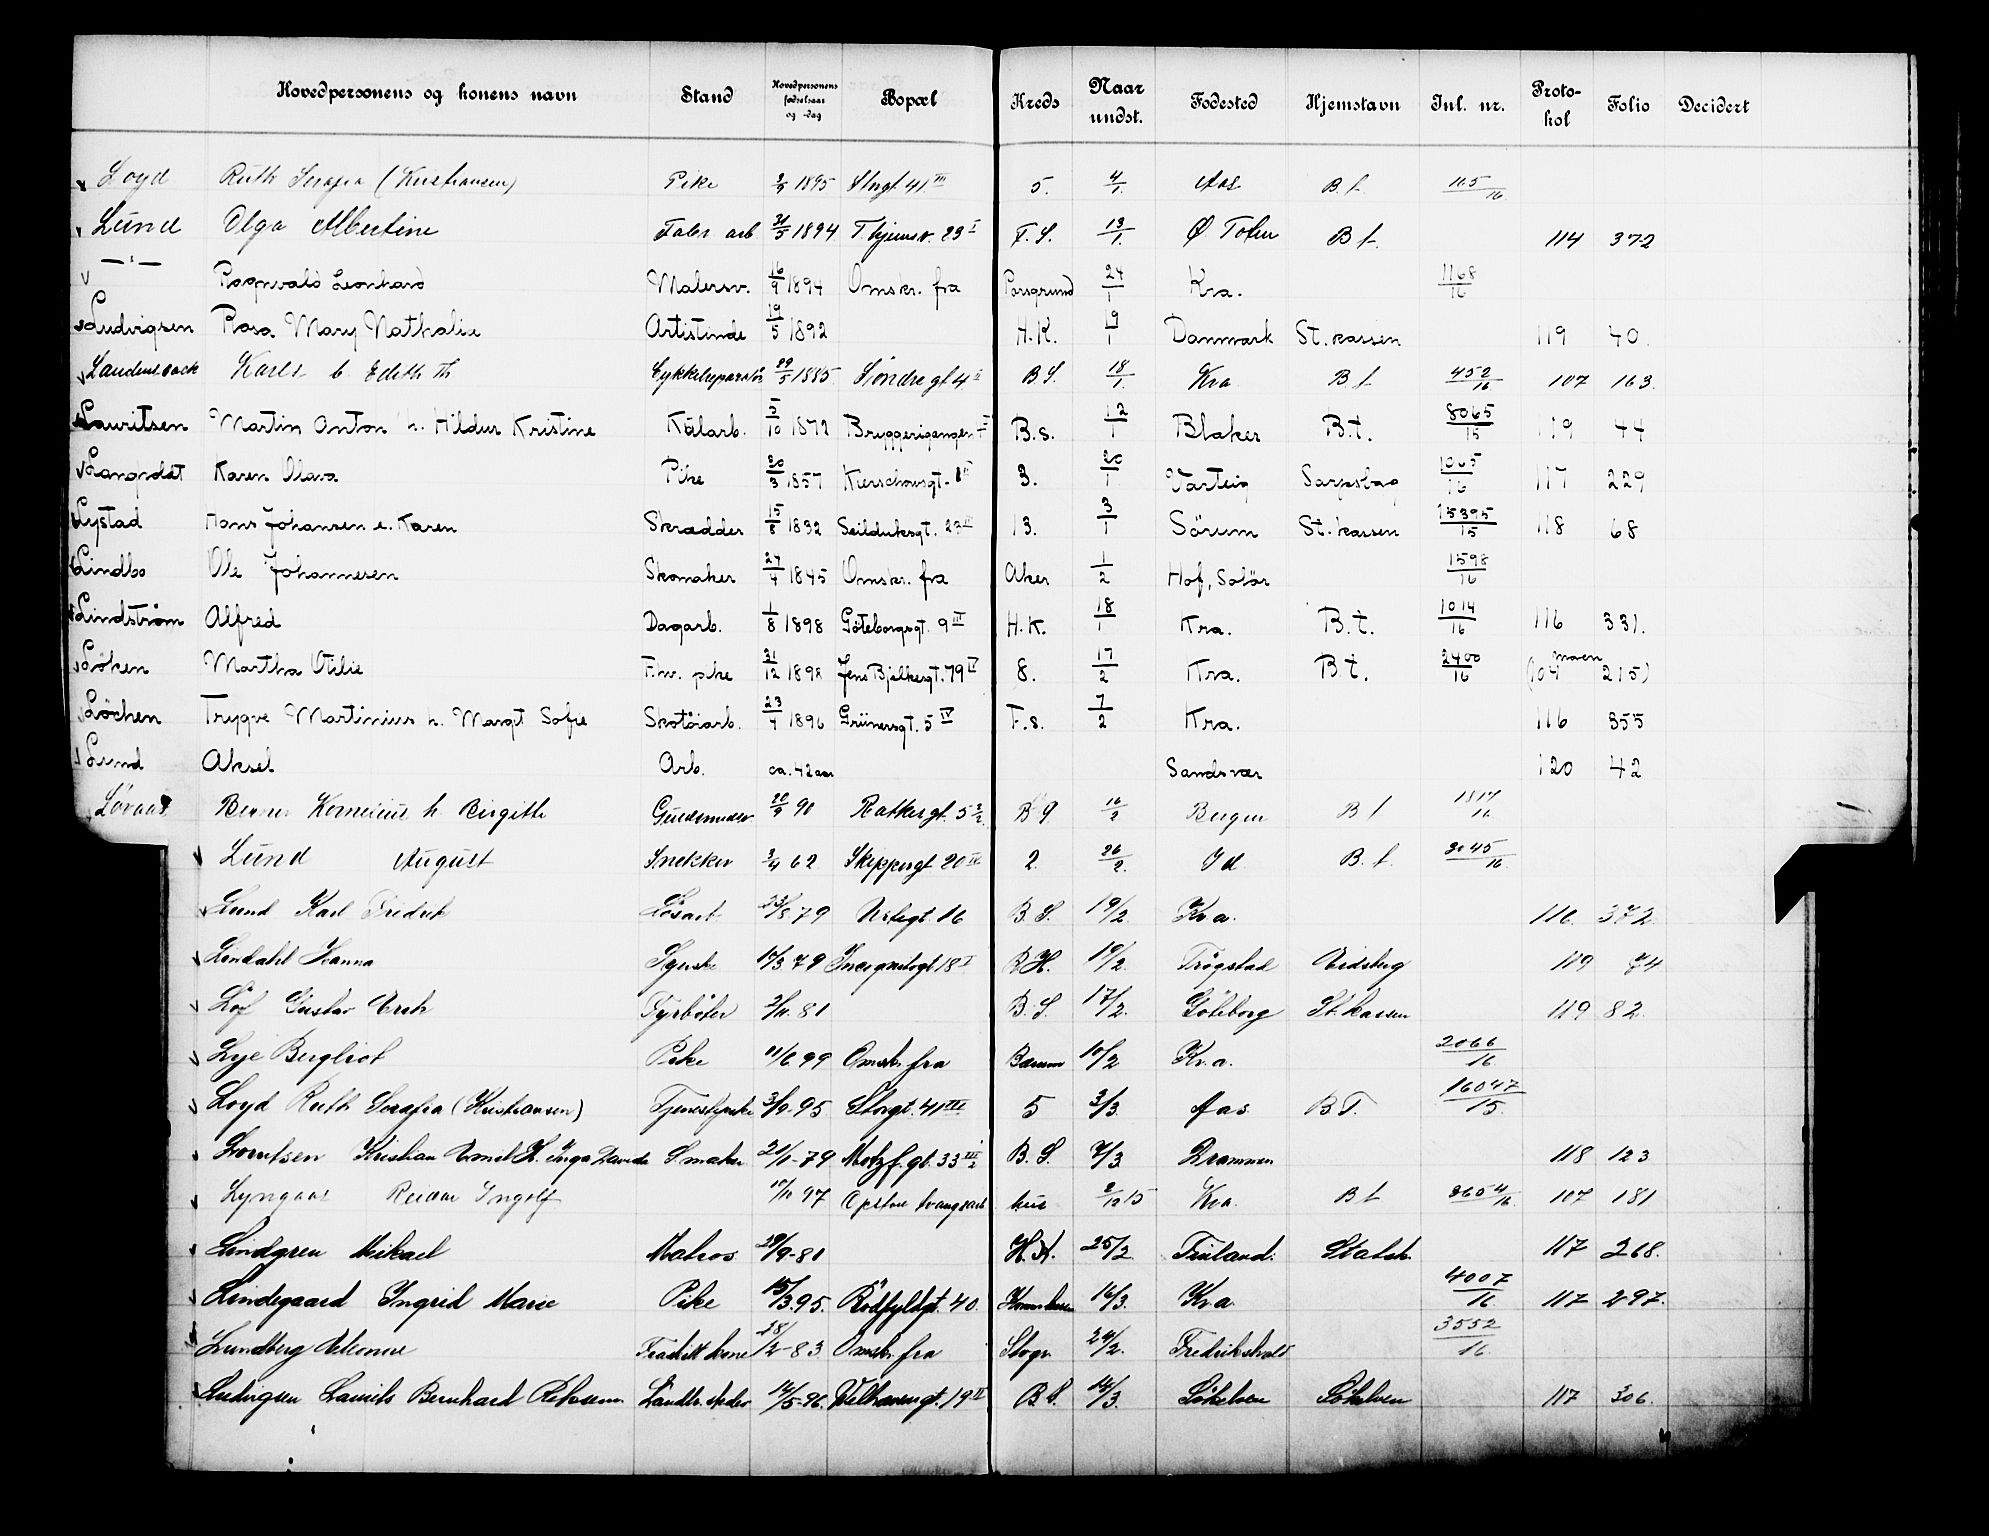 Hovedpersonens og konens navn Stand Hovedpersonens fødselsaar og -dag Bopæl Kreds Naar undst. Fødested Hjemstavn Inl. nr. Proto-kol Folio Decidert
Loyd Ruth Serafia (Kristiansen) Pike 3/9 1895 Storgt. 41 III 5. 4/1. Aas B.t. 165/16
Lund Olga Albertine Fabr arb 31/5 1894 T. hjemsv. 23 I F.S. 13/1. Ø. Toten B.t. 114 372
—"— Rognvald Leonhard Malersv. 16/9 1894 Omskr. fra Porsgrund 24/1 Kra. 1168/16
Ludvigsen Rosa Mary Nathalie Artistinde 19/5 1892 H.K. 19/1 Danmark St. kassen 119 40.
Laudensack Karls h. Edith Th Cykkelreparatör 29/5 1885 Söndregt 4 II B.S. 18/1. Kra B.t. 452/16 107 163.
Lauritsen Martin Anton h. Hildur Kristine Kölarb. 5/10 1872 Bryggerigangen B.s. 12/1 Blaker B.t. 8065/15 119 44
Karen Olava Pike 20/3 1857 Kierschousgt. 8 II 3. 20/1 Varteig Sarpsborg 1065/16 117 229
Lystad Hans Johansen e. Karen Skrædder 15/8 1832 Seilduksgt. 23 II 13. 3/1 Sörum St. kassen 15395/15 118 68
Lindbo Ole Johannesen Skomaker 27/4 1845 Omskr. fra Aker 1/2 Hof, Solör 1598/16
Lindström Alfred Dagarb. 1/8 1898 Göteborggt. 9 III H.K. 18/1 Kra. B.t. 1014/16 116 331.
Löken Martha Otilie F.hv. pike 31/12 1898 Jens Bjelkesgt. 79 IV 8. 17/2 Kra. B.t. 2400/16 (104 moren 215)
Löchen Trygve Martinius h. Margt Sofie Skotöiarb. 23/4 1896 Grünersgt. 5 IV F.s. 7/2 Kra. 116 355
Lund Aksel Arb. ca. 42 aar Sandsvær 120 42
Løvaas Kornelius h. Birgitte Guldsmedsv 20/9 90 Ratkesgt. 5 2/2 B.G. 16/2 Bergen B.t. 1817/16
Lund August Snekker 3/4 62 Skippergt 20 IV 2. 26/2. Id B.t. 3045/16
Lund Karl Fredrik Lösarb 23/8 79 Urtegt. 16 B.S. 19/2. Kra. 116. 372
Lindahl Hanna Syerske 14/3 79 18 I B.H. 19/2. Trögstad Eidsberg 119 74
Löf Gustav Erik Fyrböter 2/11. 81 B.S. 17/2. Göteborg St. kassen 119 82.
Lye Bergliot Pike 11/6 99 Omskr. fra Bærum 10/2 Kra. 2066/16
Loyd Ruth Serafia (Kristiansen) Tjenestpike 3/9-95 Storgt. 41 III 5 3/3. Aas B.T. 16047/15.
Lorentsen Kristian Emil H. Inga Davida Smaker 21/1-79 Motzf.gt. 33 III/2 B.S. 7/3 Drammen 118 123
Lyngaas Reidar Ingolf 10/11 97 Opstav tvangsarb hus 2/12 15 Kra. B.t. 3654/16 107 181
Lindgren Mikael Matros 29/9-81 H.K. 25/2 Finland. Statsk. 117 268.
Lindegaard Ingrid Marie Pike 15/3.95. Rödfyldgt. 40. 16/3. Kra 4007/16 117 297.
Lundberg Fraskilt kone 28/12-83. Omskr. fra 24/2. Fredrikshald 3552/16.
Ludvigsen Laurits Bernhard 14/5-96. Welhavensgt. 19 II B.S. 14/3. 117 306.